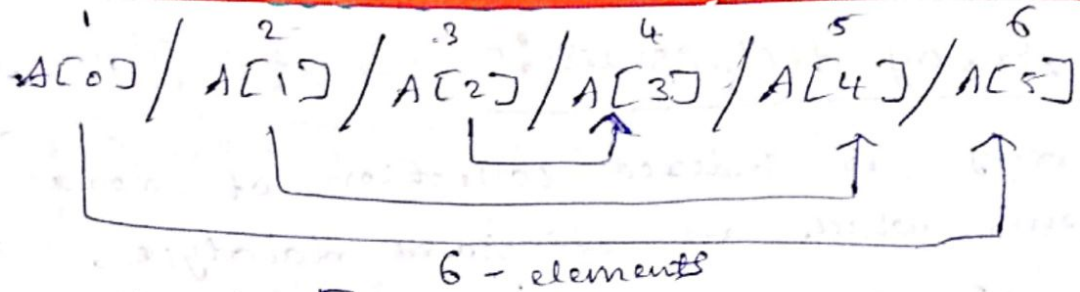 1 2 3 4 5 6
A[0] / A[1] / A[2] / A[3] / A[4] / A[5]
6 - elements